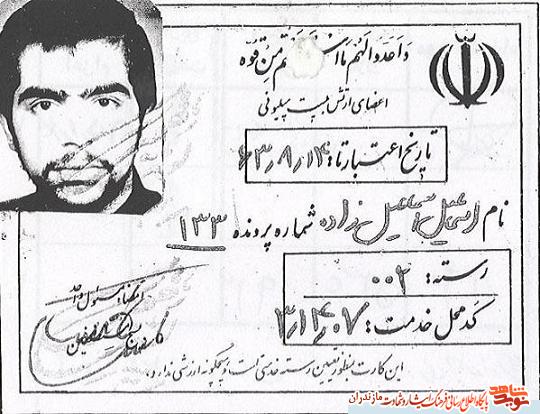 واعدوا لهم ما استطعتم من قوه
اعضای ارتش بیست میلیونی
تاریخ اعتبار تا: ۶۳٫۸٫۱۴
نام اسماعیل اسماعیل زاده شماره پرونده ۱۳۳
رسته: ۰۰۲
کد محل خدمت: ۳٫۱۴٫۰۷
امضاء مسئول واحد
این کارت بمنظور تعیین رسته خدمتی است و هیچگونه ارزشی ندارد.
نوید شاهد
پایگاه اطلاع رسانی فرهنگ ایثار و شهادت مازندران